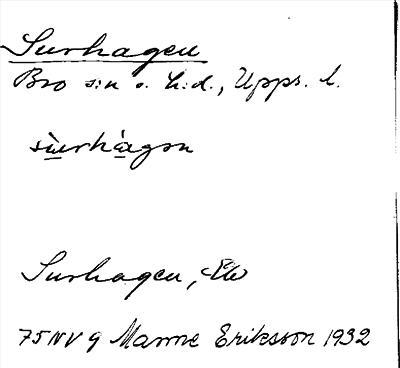 Surhagen
Bro s:n o. h:d., Upps. l.
sùrhàgən
Surhagen,
75 NV q Manne Eriksson 1932